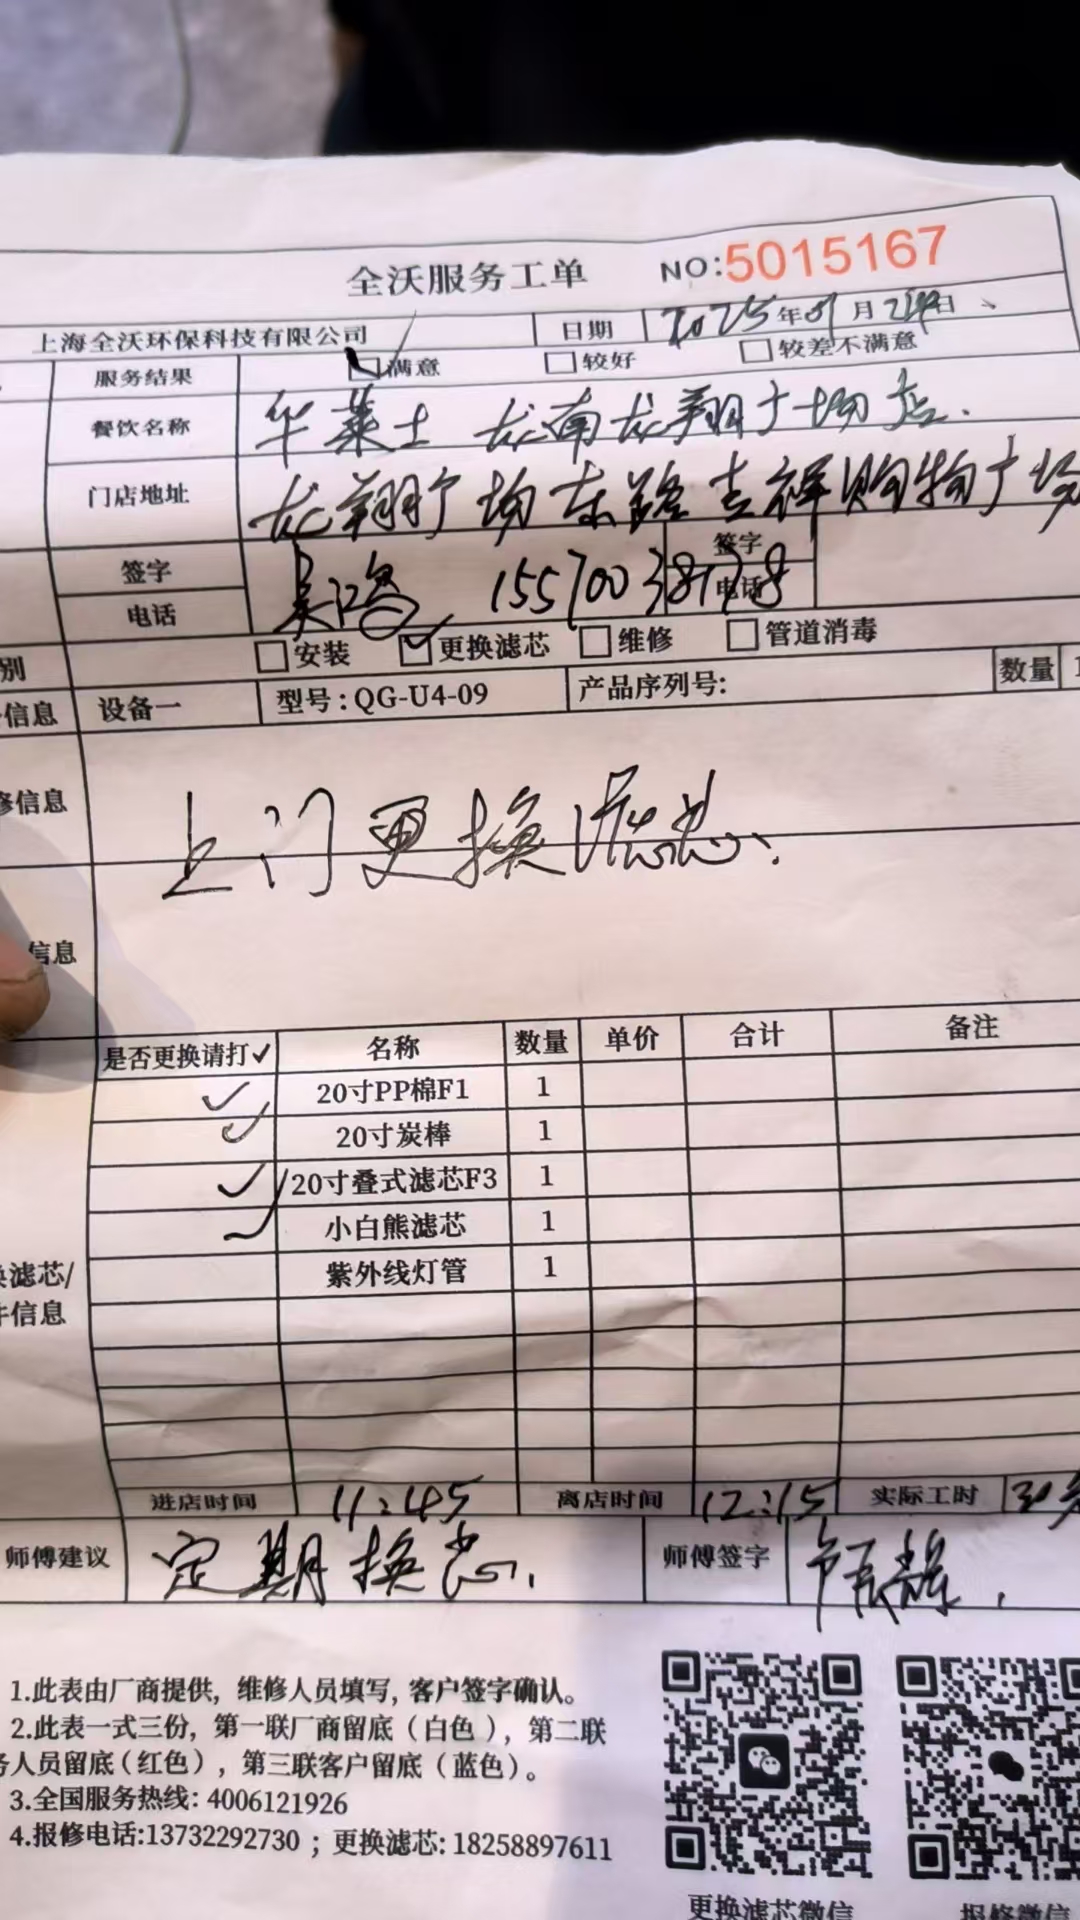 全沃服务工单 NO:5015167
上海全沃环保科技有限公司 日期 2025年01月24日
服务结果 满意 较好 较差不满意
餐饮名称 华莱士 龙南龙翔广场店.
门店地址 龙翔广场东路吉祥购物广场
签字 签字
电话 15570038178 电话
别 安装 更换滤芯 维修 管道消毒
信息 设备一 型号:QG-U4-09 产品序列号: 数量
修信息
上门更换滤芯.
信息
是否更换请打✓ 名称 数量 单价 合计 备注
✓ 20寸PP棉F1 1
✓ 20寸炭棒 1
✓ 20寸叠式滤芯F3 1
✓ 小白熊滤芯 1
紫外线灯管 1
换滤芯/
件信息
进店时间 11:45 离店时间 12:15 实际工时
师傅建议 定期换芯. 师傅签字
1.此表由厂商提供, 维修人员填写, 客户签字确认。
2.此表一式三份, 第一联厂商留底(白色), 第二联
务人员留底(红色), 第三联客户留底(蓝色)。
3.全国服务热线: 4006121926
4.报修电话:13732292730 ; 更换滤芯: 18258897611
更换滤芯微信 报修微信